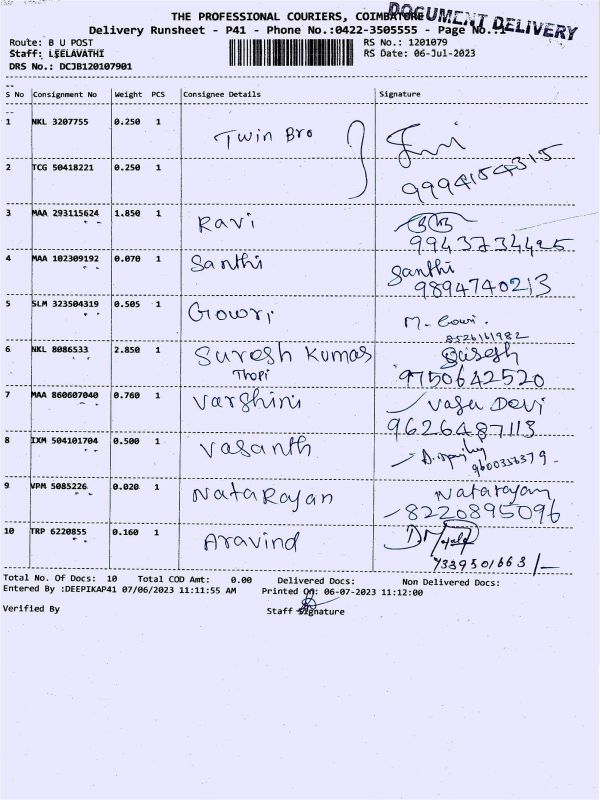 THE PROFESSIONAL COURIERS, COIMBATORE
DOCUMENT DELIVERY
Delivery Runsheet - P41 - Phone No.:0422-3505555 - Page No.:1
Route: B U POST
RS No.: 1201079
Staff: LEELAVATHI
RS Date: 06-Jul-2023
DRS No.: DCJB120107901
S No Consignment No Weight PCS Consignee Details Signature
1 NKL 3207755 0.250 1 Twin Bro
2 TCG 50418221 0.250 1 9994154315
3 MAA 293115624 1.850 1 Ravi
9943734495
4 MAA 102309192 0.070 1 Santhi Santhi
9894740213
5 SLM 323504319 0.505 1 Gowri M. Gowri.
8526161982
6 NKL 8086533 2.850 1 Suresh Kumar Suresh
Thopi 9750642520
7 MAA 860607040 0.760 1 Varshini Vasu Devi
9626487113
8 IXM 504101704 0.500 1 Vasanth
9600357379
9 VPM 5085226 0.020 1 Natarajan Natarajan
8220895096
10 TRP 6220855 0.160 1 Aravind
7339501663/-
Total No. Of Docs: 10 Total COD Amt: 0.00 Delivered Docs: Non Delivered Docs:
Entered By :DEEPIKAP41 07/06/2023 11:11:55 AM Printed On: 06-07-2023 11:12:00
Verified By Staff Signature